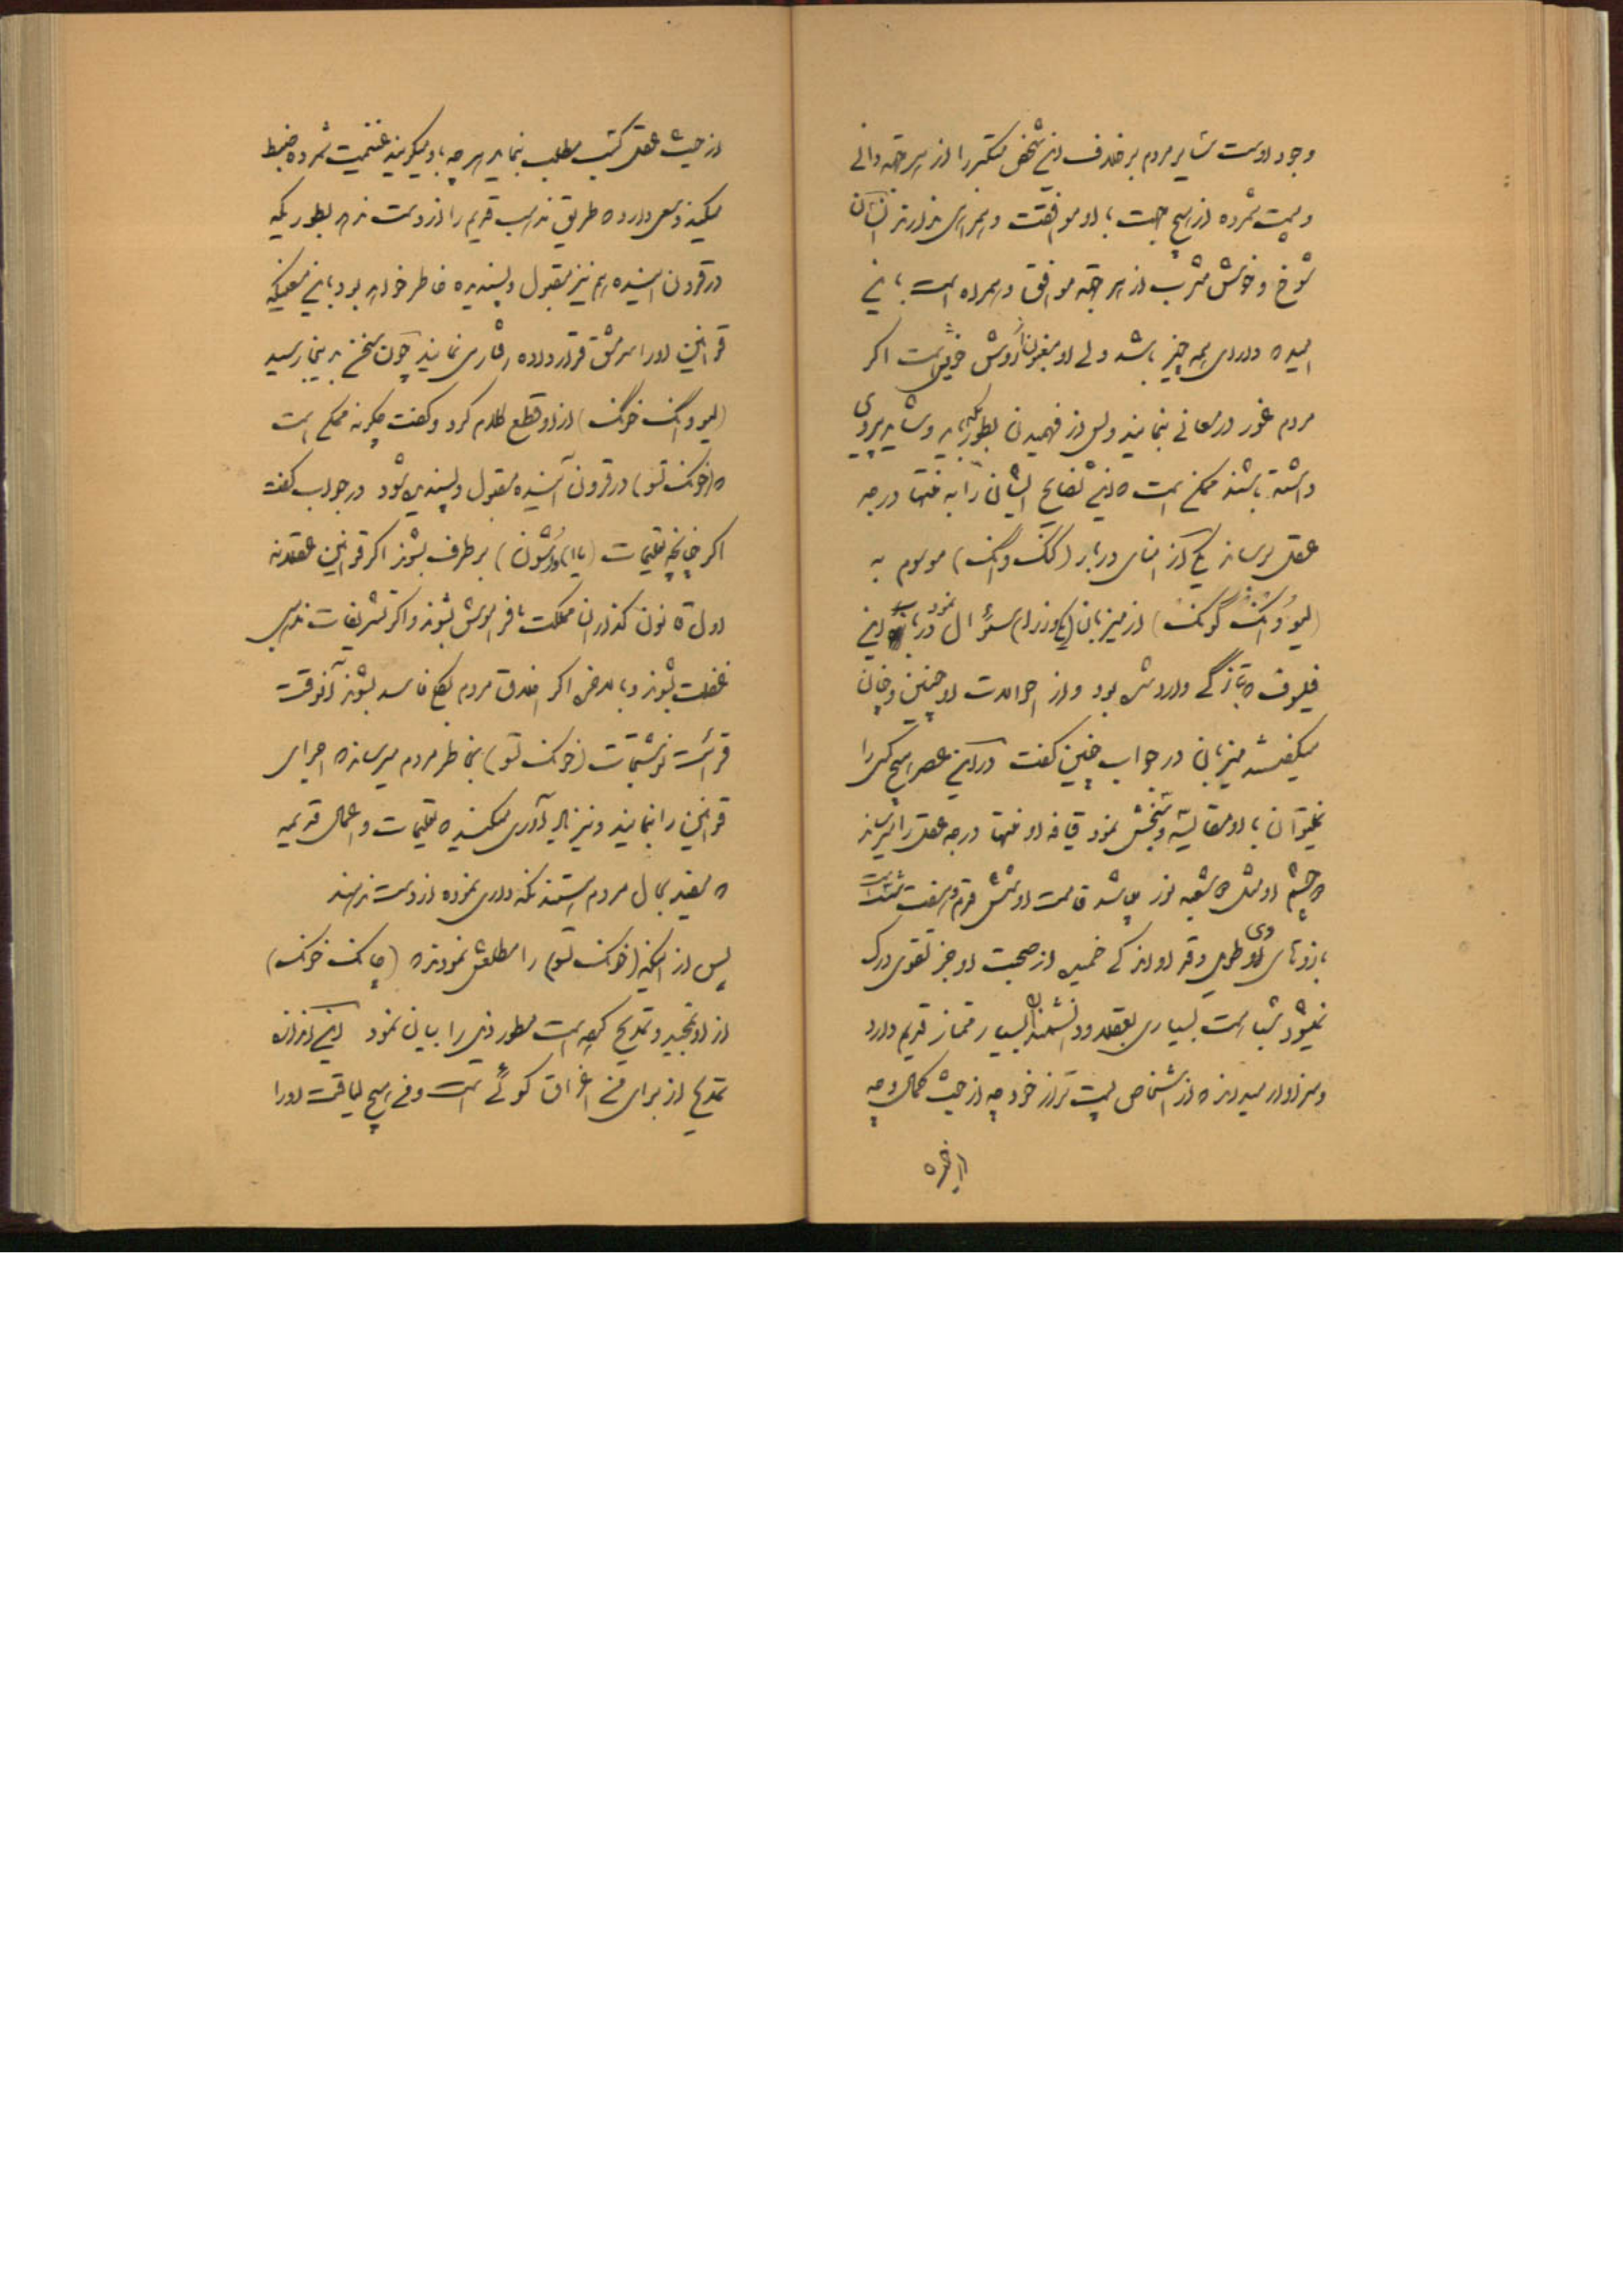 وجود اوست سایر مردم بر خلاف این شخص متکبر را از هر جهة دانی
و پست شمرده از هیچ جهت با او موافقت و همراهی ندارند انسان
شوخ و خوش مشرب از هر جهة موافق و همراه است با این
که دارای همه چیز باشد ولی او مفتون روش خویش است اگر
مردم غور در معانی بنمایند و پس از فهمیدن بطوریکه باید و شاید پیروی
داشته باشند ممکن است که این نصایح ایشان را به منتها درجه
عقل برساند یکی از امنای دربار (کنگ وانگ) موسوم به
(لیو وانگ گونگ) از میزبان (یکی از وزراء) سئوال نمود درباره این
فیلسوف که بتازگی وارد شده بود و از احوالات او چنین و چنان
میگفتند میزبان در جواب چنین گفت در این عصر هیچ کس را
نمیتوان با او مقایسه و سنجش نمود قیافه او منتها درجه عقل را میرساند
که چشم او مثل شعبه نور میباشد قامت او شش قدم و هفت
بازوهای وی طویل وقد او اندکی خمیده از صحبت او جز تقوی درک
نمیشود شباهت بسیاری بعقلا و دانشمندان بسیار ممتاز قدیم دارد
و سزاوار میداند که از اشخاص پست تر از خود چه از حیث کمال و چه
از حیث عقل کسب مطلب بنماید هر چه باو میگویند غنیمت شمرده ضبط
میکند و سعی دارد که طریق مذهب قدیم را از دست ندهد بطوریکه
در قرون آینده هم نیز مقبول و پسندیده خاطر خواهد بود باین معنی که
قوانین او را سرمشق قرار داده رفتار می نمایند چون سخن بدینجا رسید
(لیو وانگ خونگ) از او قطع کلام کرد و گفت چگونه ممکن است
که (خونگ تسو) در قرون آینده مقبول و پسندیده شود در جواب گفت
اگر چنانچه تعلیمات (یااو وشون) بر طرف بشوند اگر قوانین عقلانه
اول قانون گذاران مملکت ما فراموش بشوند و اگر تشریفات مذهبی
غفلت بشوند و بالاخره اگر اخلاق مردم بکلی فاسد بشوند آنوقت
قرائت نوشتجات (خونگ تسو) بخاطر مردم میرساند که اجرای
قوانین را بنمایند و نیز یادآوری میکند که تعلیمات و اعمال قدیمه
که مفید بحال مردم هستند نگه داری نموده از دست ندهند
پس از اینکه (خونگ تسو) را مطلعش نمودند که (چانگ خونگ)
از او تمجید و تمدیح کرده است بطور ذیل را بیان نمود این اندازه
تمدیح از برای من اغراق گوئی است و من هیچ لیاقت او را